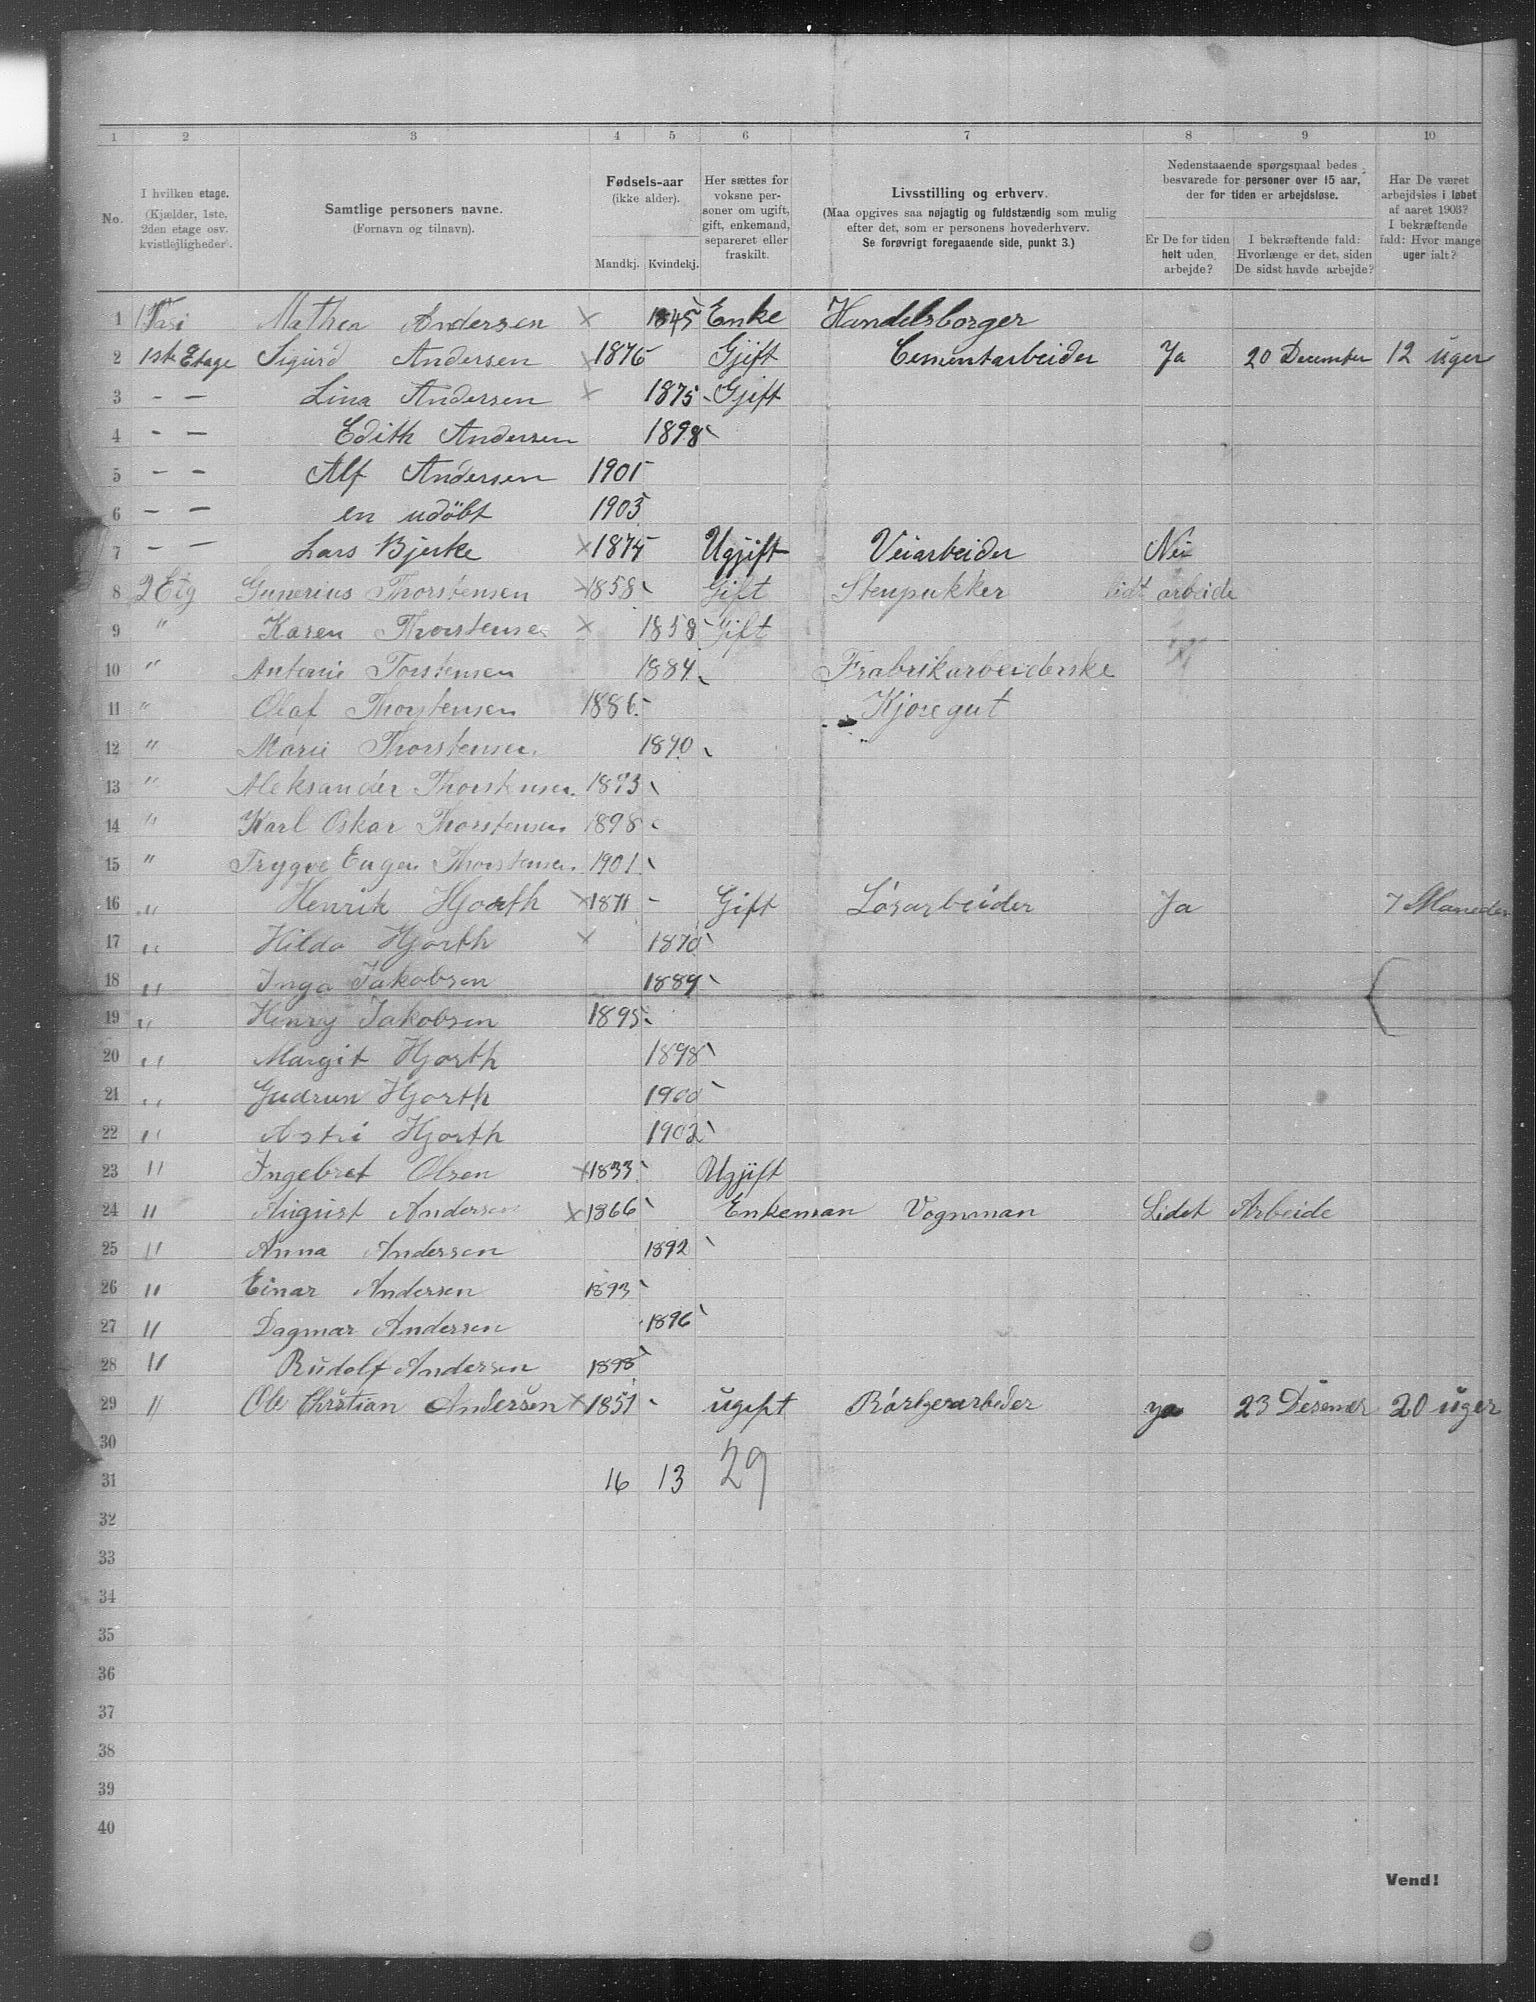 1 2 3 4 5 6 7 8 9 10
No.
I hvilken etage. (Kjælder, 1ste, 2den etage osv. kvistlejligheder).
Samtlige personers navne. (Fornavn og tilnavn).
Fødsels-aar (ikke alder).
Mandkj. Kvindekj.
Her sættes for voksne personer om ugift, gift, enkemand, separeret eller fraskilt.
Livsstilling og erhverv. (Maa opgives saa nøjagtig og fuldstændig som mulig efter det, som er personens hovederhverv. Se forøvrigt foregaaende side, punkt 3.)
Nedenstaaende spørgsmaal bedes besvarede for personer over 15 aar, der for tiden er arbejdsløse.
Er De for tiden helt uden arbejde?
I bekræftende fald: Hvorlænge er det, siden De sidst havde arbejde?
Har De været arbejdsløs i løbet af aaret 1903? I bekræftende fald: Hvor mange uger ialt?
1 Andersen × 1845 Enke Handelsborger
2 1ste Etage Sigurd Andersen × 1876 Gjift Cementarbeider Ja 20 December 12 uger
3 - - Lina Andersen × 1875 Gjift
4 - - Edith Andersen 1898
5 - - Alf Andersen 1901
6 - - en udöbt 1903
7 - - Lars Bjerke × 1875 Ugjift Veiarbeider Nei
8 2 Etg Gunerius Thorstensen × 1858 Gift Stenpukker lidt arbeide
9 " Karen Thorstensen × 1858 Gift
10 " Antonie Torstensen 1884 Frabrikarbeiderske
11 " Olaf Thorstensen 1886 Kjøregut
12 " Marie Thorstensen 1890
13 " Aleksander Thorstensen 1893
14 " Karl Oskar Thorstensen 1898
15 " Trygve Eugen Thorstensen 1901
16 " Henrik Hjorth × 1871 Gift Løsarbeider Ja 7 Maneder
17 " Hilda Hjorth × 1870
18 " Inga Jakobsen 1889
19 " Henry Jakobsen 1895
20 " Margit Hjorth 1898
21 " Gudrun Hjorth 1900
22 " Astri Hjorth 1902
23 " Ingebret Olsen × 1833 Ugjift
24 " August Andersen × 1866 Enkeman Vognman Lidet Arbeide
25 " Anna Andersen 1892
26 " Einar Andersen 1893
27 " Dagmar Andersen 1896
28 " Rudolf Andersen 1898
29 " Ole Christian Andersen × 1851 ugift ya 23 20 uger
30
31 16 13 29
32
33
34
35
36
37
38
39
40
Vend!